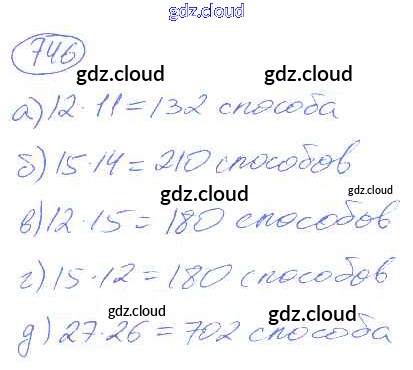 gdz.cloud
746
gdz.cloud gdz.cloud
а) 12 · 11 = 132 способа
gdz.cloud
б) 15 · 14 = 210 способов
gdz.cloud gdz.cloud
в) 12 · 15 = 180 способов
gdz.cloud
г) 15 · 12 = 180 способов
gdz.cloud gdz.cloud
д) 27 · 26 = 702 способа
gdz.cloud